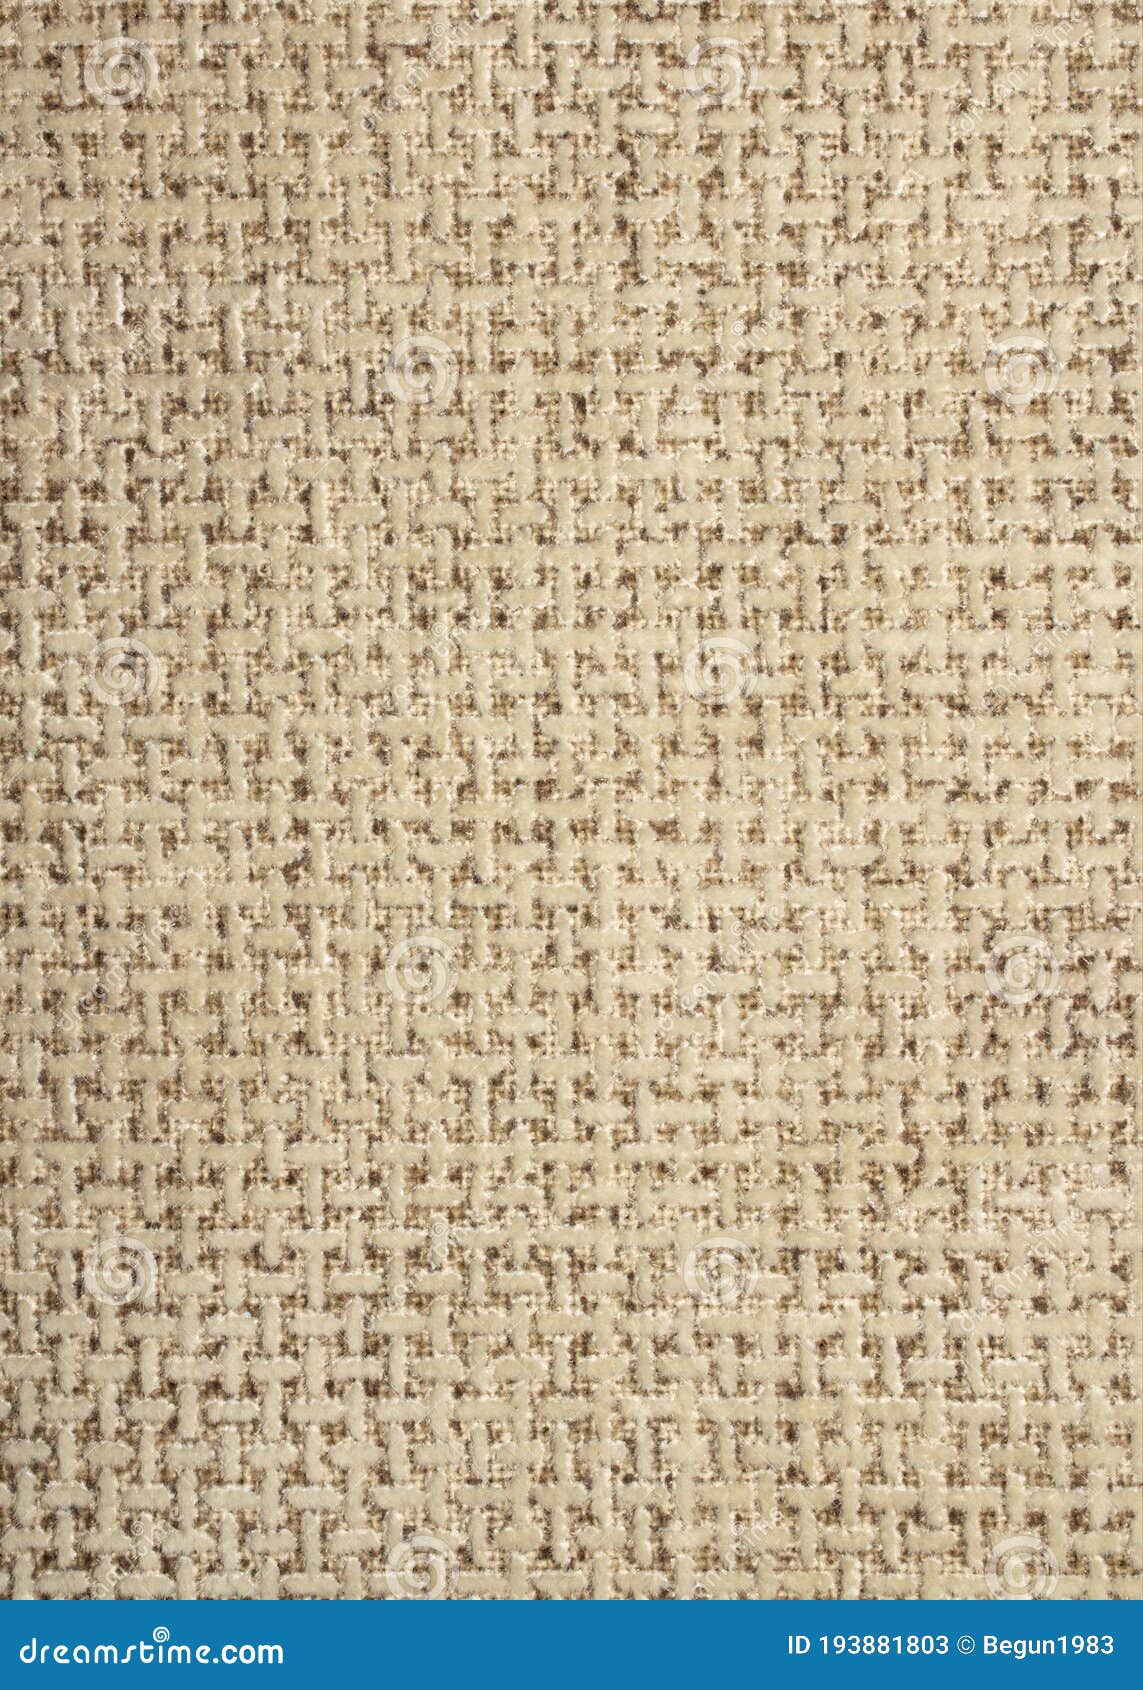 dreamstime.com
ID 193881803 © Begun1983